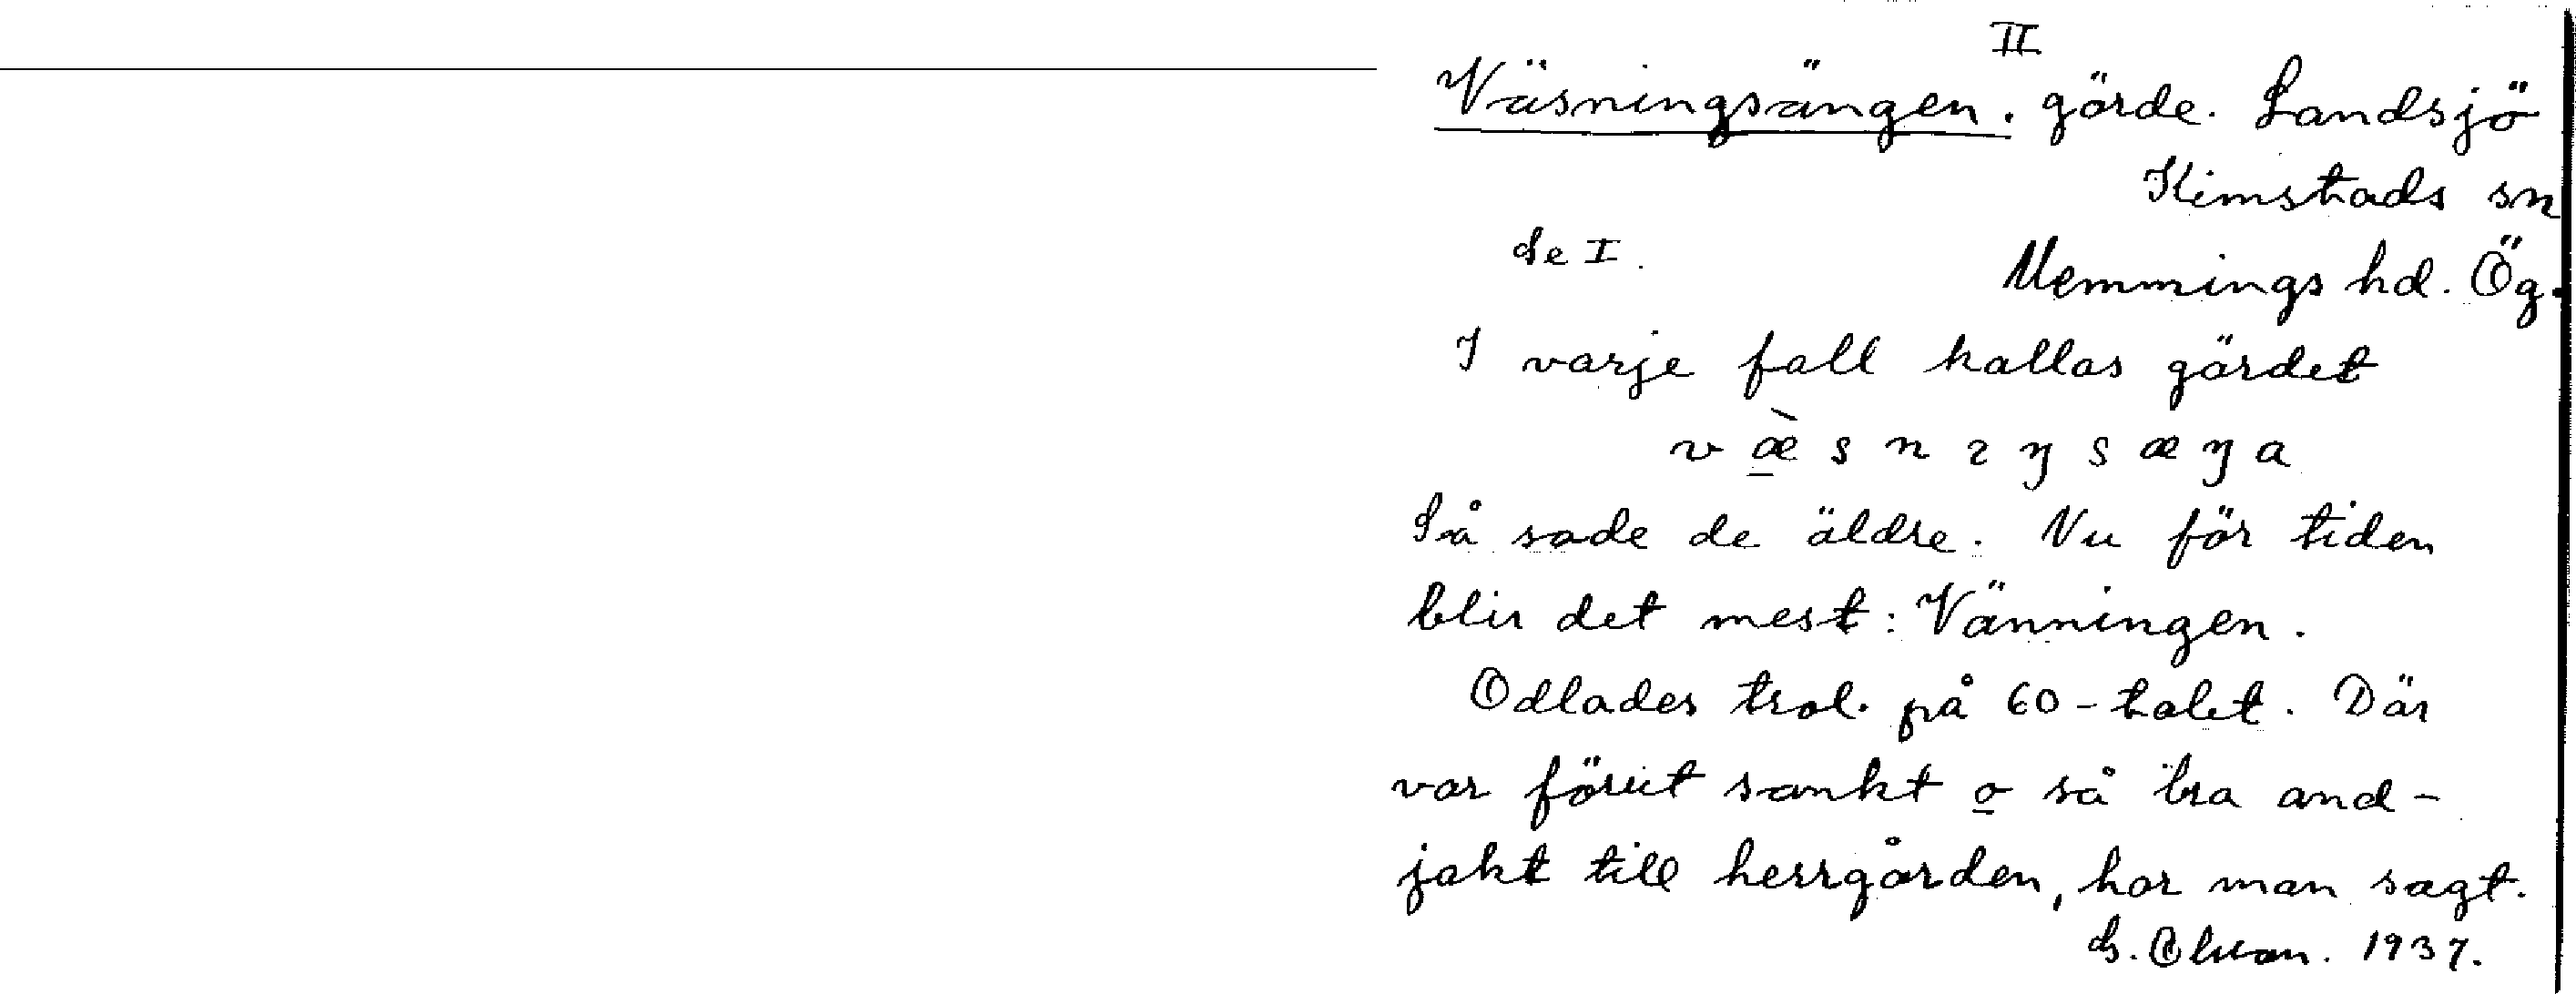 II
Väsningsängen. görde. Landsjö
Kimstads sn
Se I.
Memmings hd. Ög.
I varje fall kallas gärdet
v æ̀ s n ɩ ŋ s æ ŋ a
Så sade de äldre. Nu för tiden
blir det mest: Vänningen.
Odlades trol. på 60-talet. Där
var förut sankt o så bra and-
jakt till herrgården, har man sagt.
1937.